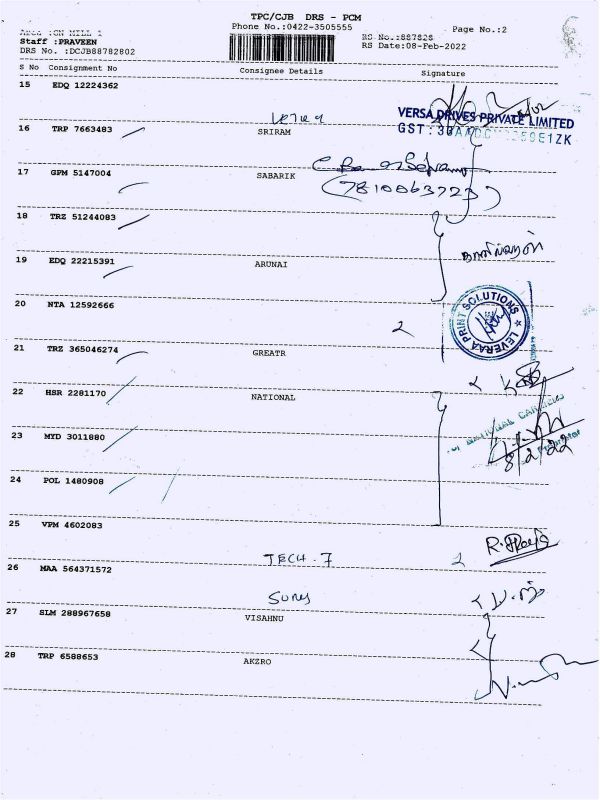 TPC/CJB DRS - PCM
Phone No.:0422-3505555
Page No.:2
Staff :PRAVEEN
RS No.:887828
DRS No. :DCJB88782802
RS Date:08-Feb-2022
S No Consignment No Consignee Details Signature
15 EDQ 12224362
VERSA DRIVES PRIVATE LIMITED
16 TRP 7663483 SRIRAM
17 GPM 5147004 SABARIK
(7810063723)
18 TRZ 51244083
19 EDQ 22215391 ARUNAI
20 NTA 12592666
LEVERAA PRINT SOLUTIONS
21 TRZ 365046274 GREATR
22 HSR 2281170 NATIONAL
23 MYD 3011880
8/2/22
24 POL 1480908
25 VPM 4602083
TECH.7
26 MAA 564371572
27 SLM 288967658 VISAHNU
28 TRP 6588653 AKZRO